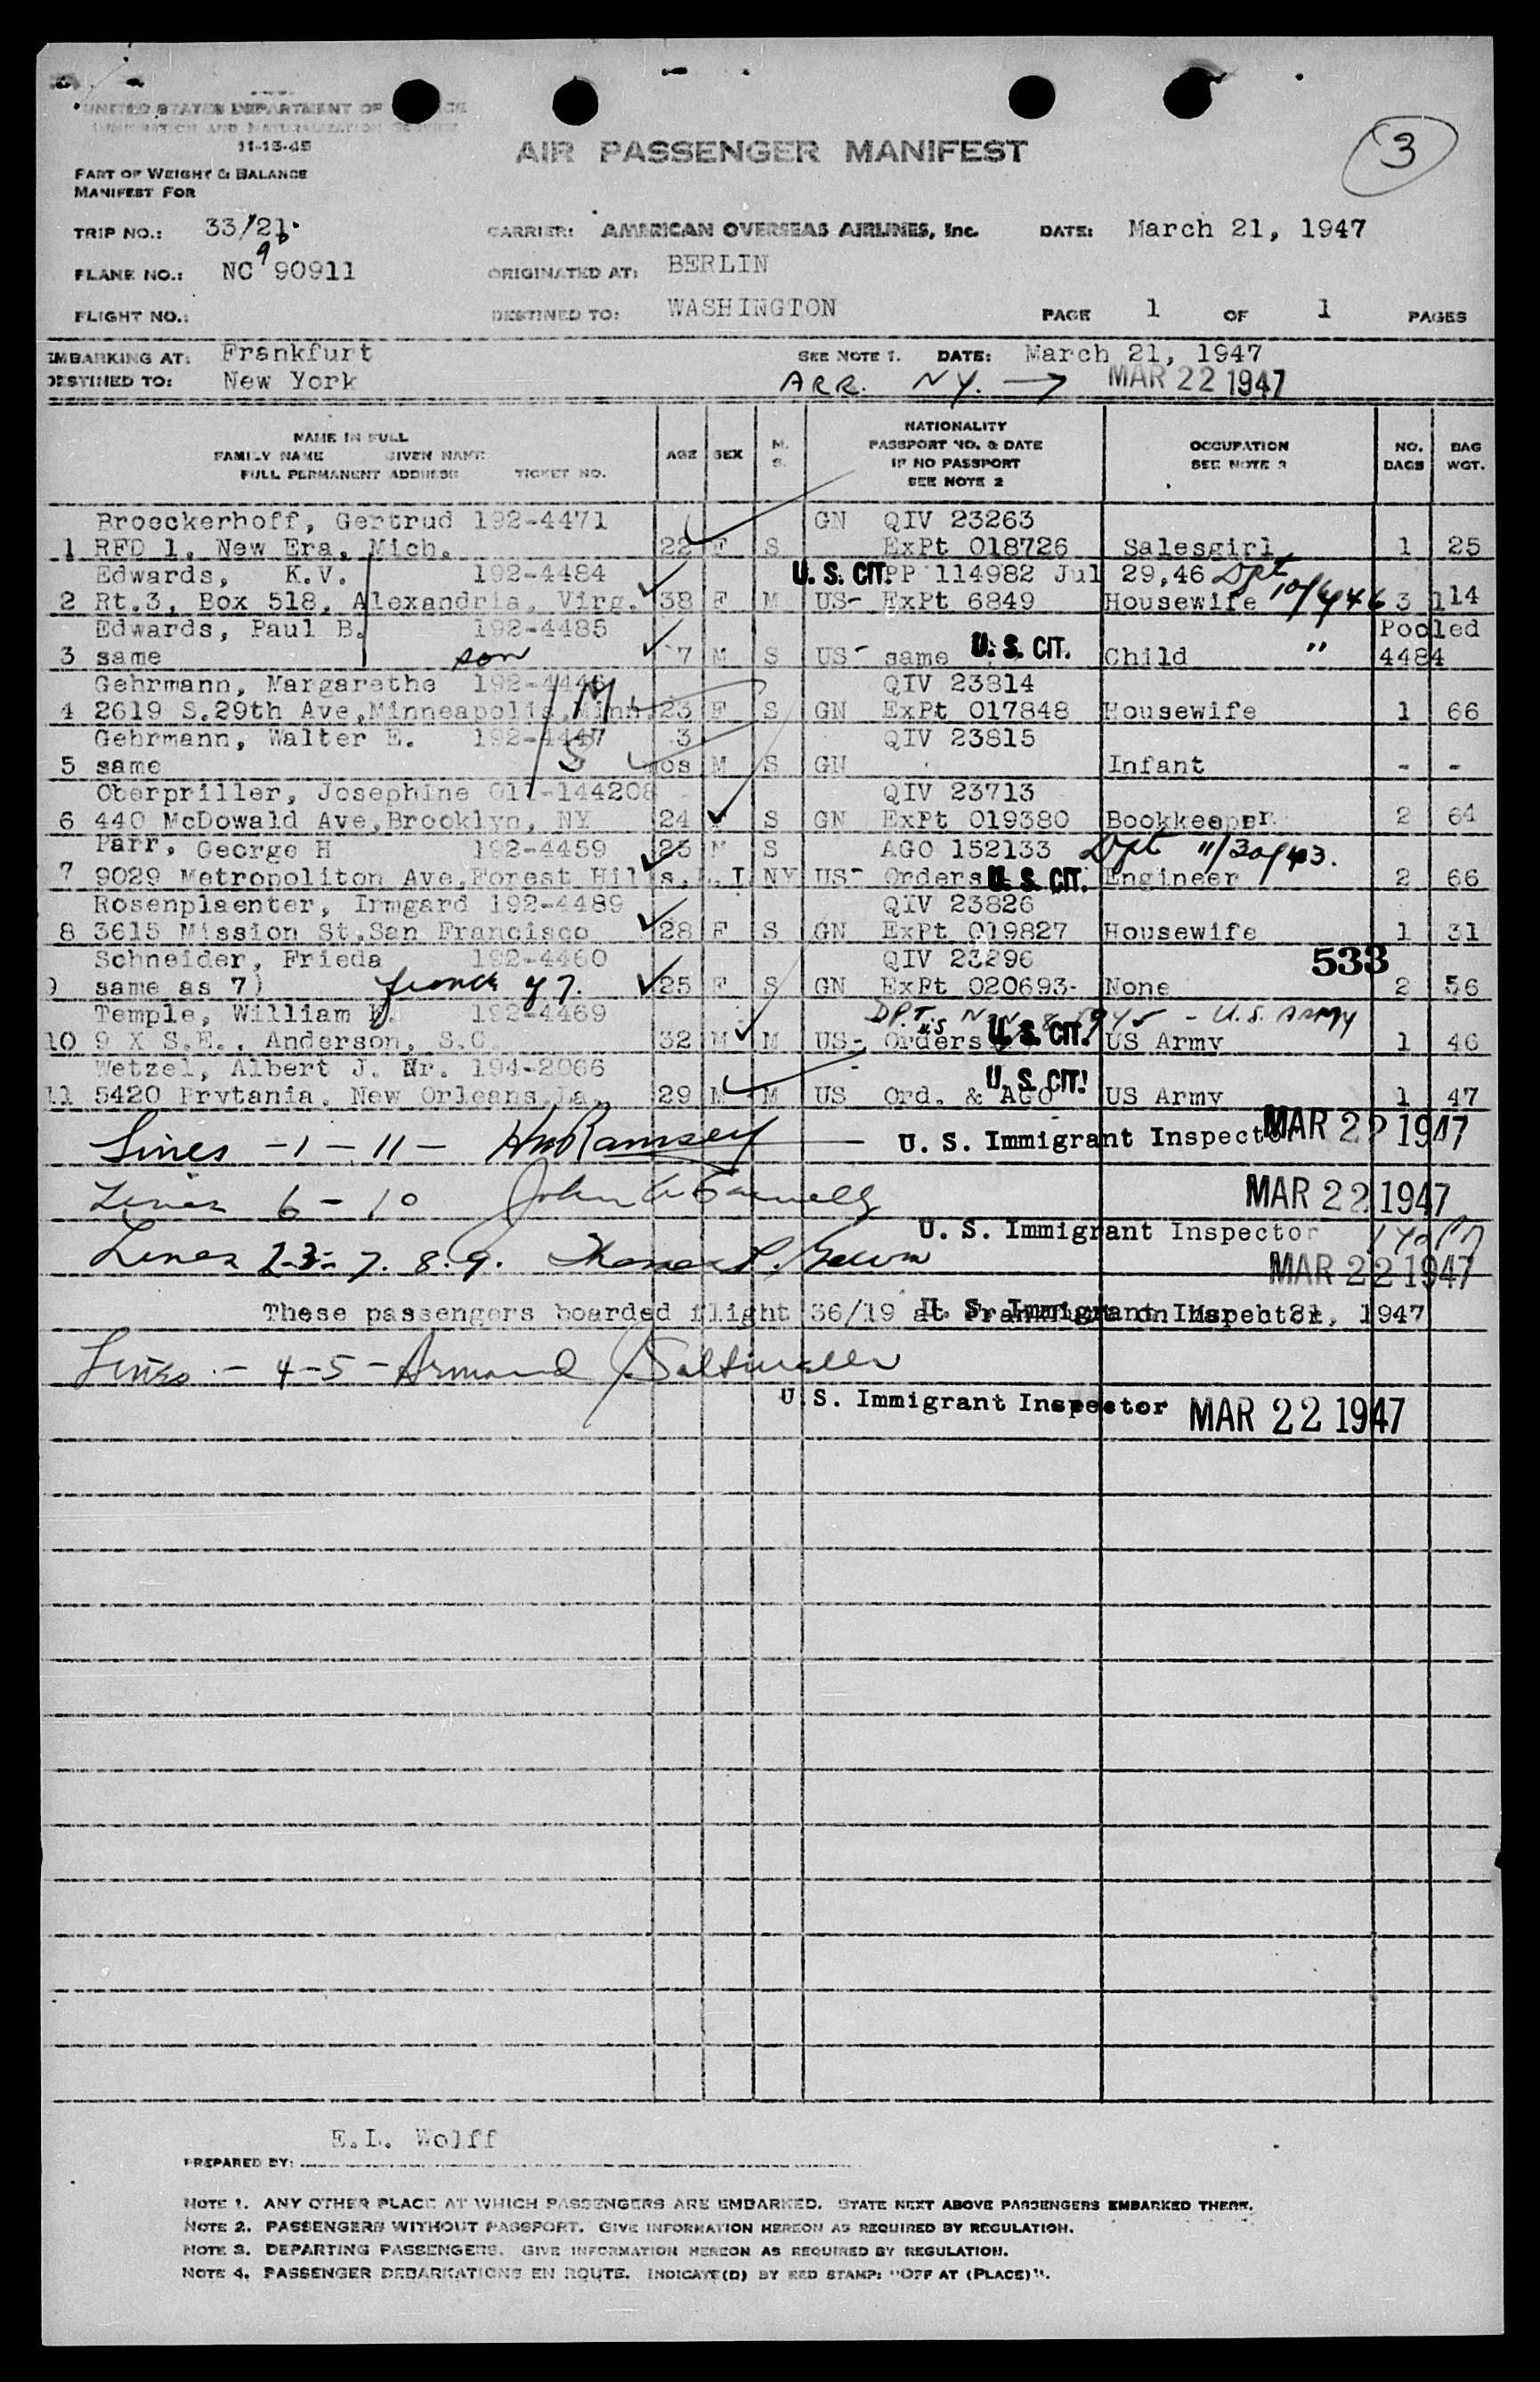 UNITED STATES DEPARTMENT OF
IMMIGRATION AND NATURALIZATION SERVICE
11-15-45
AIR PASSENGER MANIFEST
3
PART OF WEIGHT & BALANCE
MANIFEST FOR
TRIP NO.: 33/21 CARRIER: AMERICAN OVERSEAS AIRLINES, Inc. DATE: March 21, 1947
PLANE NO.: NC 90911 ORIGINATED AT: BERLIN
FLIGHT NO.: DESTINED TO: WASHINGTON PAGE 1 OF 1 PAGES
EMBARKING AT: Frankfurt SEE NOTE 1. DATE: March 21, 1947
DESTINED TO: New York ARR. NY. → MAR 22 1947
NAME IN FULL
FAMILY NAME GIVEN NAME
FULL PERMANENT ADDRESS TICKET NO.
AGE SEX M. S.
NATIONALITY
PASSPORT NO. & DATE
IF NO PASSPORT
SEE NOTE 2
OCCUPATION
SEE NOTE 3
NO. BAGS
BAG WGT.
Broeckerhoff, Gertrud 192-4471 GN QIV 23263
1 RFD 1, New Era, Mich. 22 F S ExPt 018726 Salesgirl 1 25
Edwards, K.V. 192-4484 U. S. CIT. PP 114982 Jul 29,46 Dpt
2 Rt.3, Box 518, Alexandria, Virg. 38 F M US- ExPt 6849 Housewife 3 114
Edwards, Paul B. 192-4485 U. S. CIT. Pooled
3 same son 7 M S US- same Child " 4484
Gehrmann, Margarethe 192-4446 QIV 23814
4 2619 S.29th Ave,Minneapolis,Minn. 23 F S GN ExPt 017848 Housewife 1 66
Gehrmann, Walter E. 192-4447 3 QIV 23815
5 same os M S GN Infant - -
Oberpriller, Josephine 011-144208 QIV 23713
6 440 McDowald Ave,Brooklyn, NY 24 F S GN ExPt 019380 Bookkeeper 2 64
Parr, George H 192-4459 25 M S AGO 152133 Dpt 11/30/43.
7 9029 Metropoliton Ave,Forest Hills, L I NY US- Orders U. S. CIT. Engineer 2 66
Rosenplaenter, Irmgard 192-4489 QIV 23826
8 3615 Mission St,San Francisco 28 F S GN ExPt 019827 Housewife 1 31
Schneider, Frieda 192-4460 QIV 23296 533
9 same as 7) 25 F S GN ExPt 020693- None 2 56
Temple, William 192-4469 DPT. - U.S. ARMY
10 9 X S.E., Anderson, S.C. 32 M M US- Orders U. S. CIT. US Army 1 46
Wetzel, Albert J. Nr. 194-2066 U. S. CIT.
11 5420 Prytania, New Orleans,La. 29 M M US Ord. & AGO US Army 1 47
Lines -1-11- HM Ramsey U. S. Immigrant Inspector MAR 22 1947
Lines 6-10 John MAR 22 1947
U. S. Immigrant Inspector
Lines 2-3-7.8.9. Thomas MAR 22 1947
U. S. Immigrant Inspector
These passengers boarded flight 36/19 at Frankfurt on March 21, 1947
Lines - 4-5- Armand
U.S. Immigrant Inspector MAR 22 1947
E.L. Wolff
PREPARED BY:
NOTE 1. ANY OTHER PLACE AT WHICH PASSENGERS ARE EMBARKED. STATE NEXT ABOVE PASSENGERS EMBARKED THERE.
NOTE 2. PASSENGERS WITHOUT PASSPORT. GIVE INFORMATION HEREON AS REQUIRED BY REGULATION.
NOTE 3. DEPARTING PASSENGERS. GIVE INFORMATION HEREON AS REQUIRED BY REGULATION.
NOTE 4. PASSENGER DEBARKATIONS EN ROUTE. INDICATE(D) BY RED STAMP: "OFF AT (PLACE)".